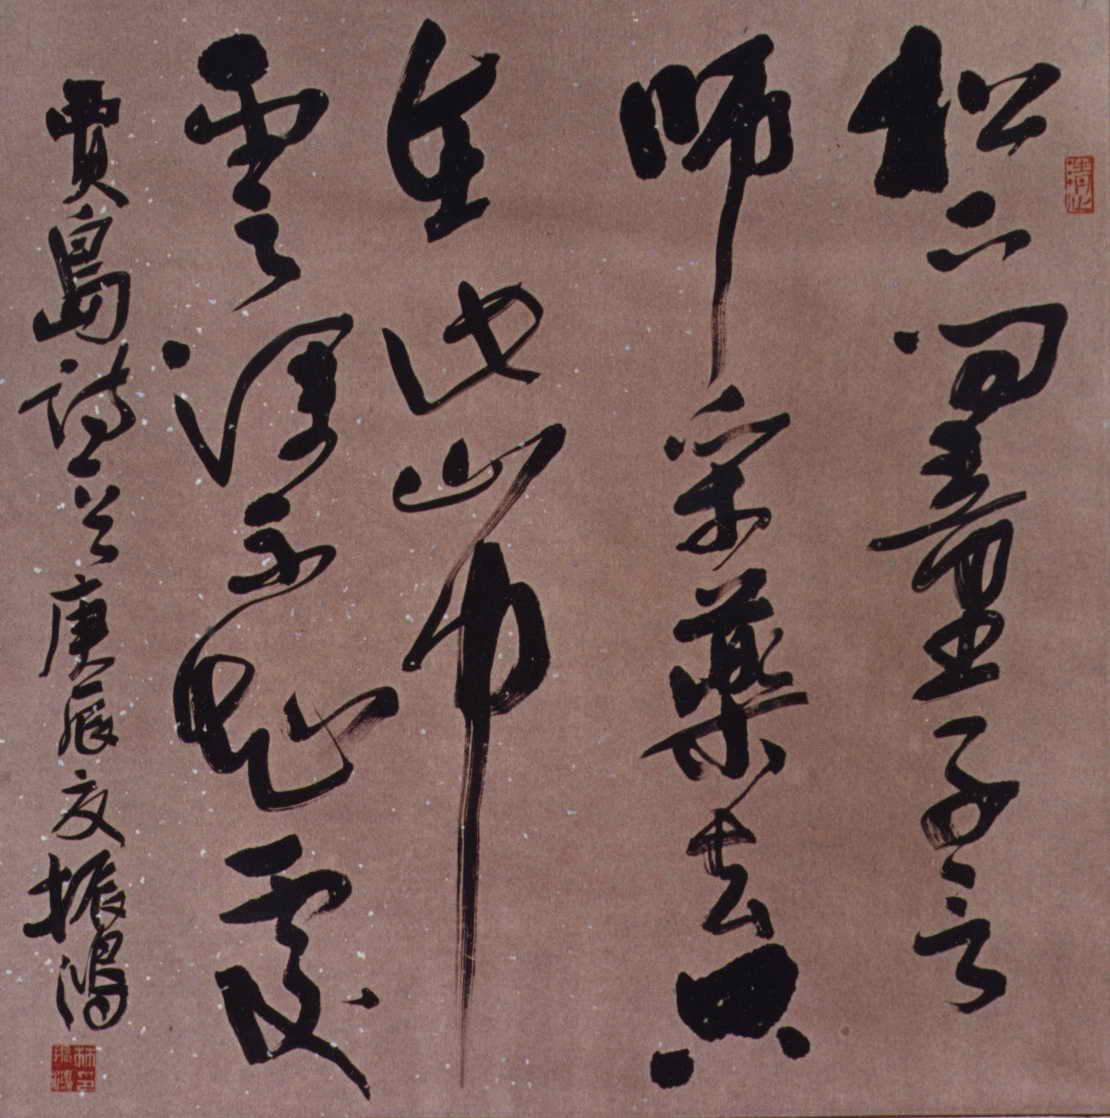 松下問童子言
師采藥去只
在此山中
雲深不知處
賈島詩一首庚辰夏振鴻